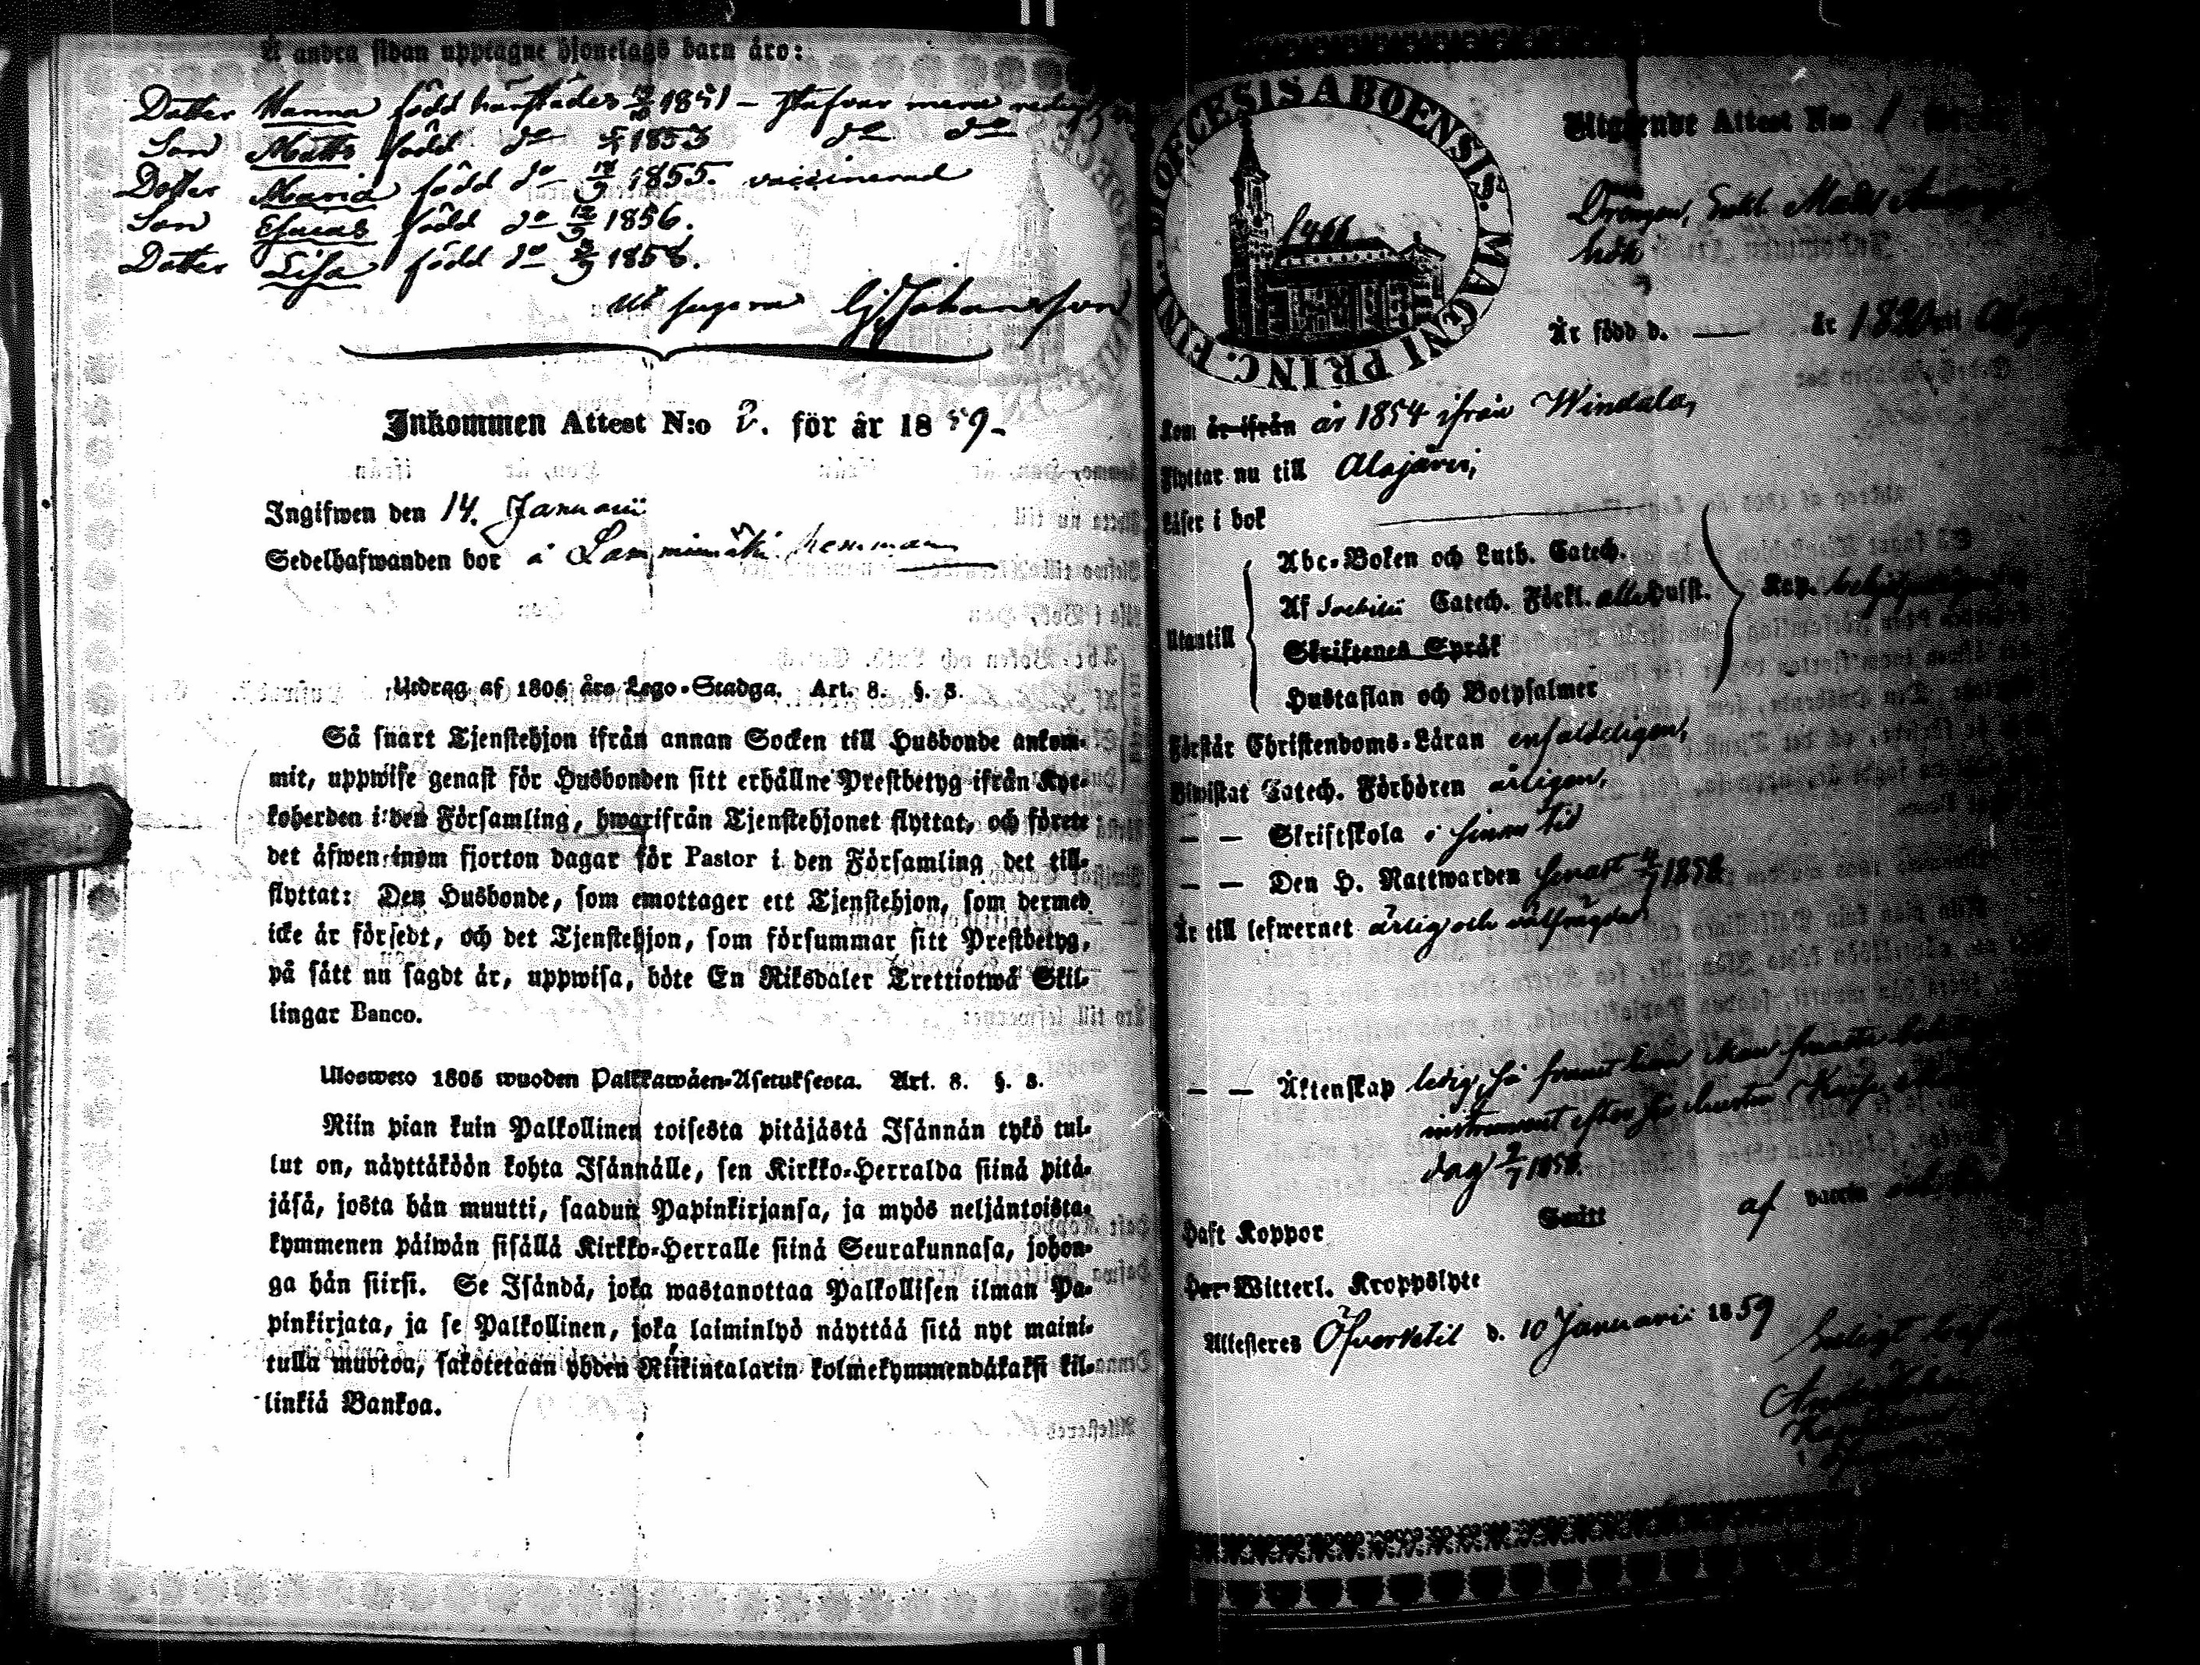 Å andra sidan upptagne hjonelags barn äro:
Dotter Hanna född härstädes 1851 – stafvar
Son Matts född do 1853 do do
Dotter Maria född do 1855. vaccinerad
Son Esaias född do 12/9 1856.
Dotter Lisa född do 1858.
Ut supra
Inkommen Attest N:o 2. för år 1859.
Ingifwen den 14. Januarii
Sedelhafwanden bor å Lamminmäki hemman
Utdrag af 1805 års Lego-Stadga. Art. 8. §. 3.
Så snart Tjenstehjon ifrån annan Socken till Husbonde ankom-
mit, uppwise genast för Husbonden sitt erhållne Prestbetyg ifrån Kyr-
koherden i den Församling, hwarifrån Tjenstehjonet flyttat, och förete
det äfwen inom fjorton dagar för Pastor i den Församling det till-
flyttat: Den Husbonde, som emottager ett Tjenstehjon, som dermed
icke är försedt, och det Tjenstehjon, som försummar sitt Prestbetyg,
på sätt nu sagdt är, uppwisa, böte En Riksdaler Trettiotwå Skil-
lingar Banco.
Ulosweto 1805 wuoden Palkkawäen-Asetuksesta. Art. 8. §. 3.
Niin pian kuin Palkollinen toisesta pitäjästä Isännän tykö tul-
lut on, näyttäköön kohta Isännälle, sen Kirkko-Herralda siinä pitä-
jäsä, josta hän muutti, saadun Papinkirjansa, ja myös neljäntoista-
kymmenen päiwän sisällä Kirkko-Herralle siinä Seurakunnasa, johon-
ga hän siirsi. Se Isändä, joka wastanottaa Palkollisen ilman Pa-
pinkirjata, ja se Palkollinen, joka laiminlyö näyttää sitä nyt maini-
tulla muotoa, sakotetaan yhden Riikintalarin kolmekymmendäkaksi kil-
linkiä Bankoa.
DIOECESIS ABOENSIS. MAGNI PRINC. FINL.
1466
Utgående Attest N:o 1
Drengen, Matts
Är född d. — år 1820
Kom är ifrån år 1854 ifrån Windala,
Flyttar nu till Alajärvi,
Läser i bok
Utantill
Abc-Boken och Luth. Catech.
Af Catech. Förkl. alla Hufst.
Skriftenes Språk
Hustaflan och Botpsalmer
Förstår Christendoms-Läran enfaldeligen,
Biwistat Catech. Förhören årligen,
— — Skriftskola i sinom tid
— — Den H. Nattwarden senast 1858
Är till lefwernet ärlig och välfrägdad
— — Äktenskap ledig, så
instrument efter
dag 2/7 1858.
Haft Koppor Smitt af vaccin
Har Witterl. Kroppslyte
Attesteres Öfverketil d. 10 Januarii 1859